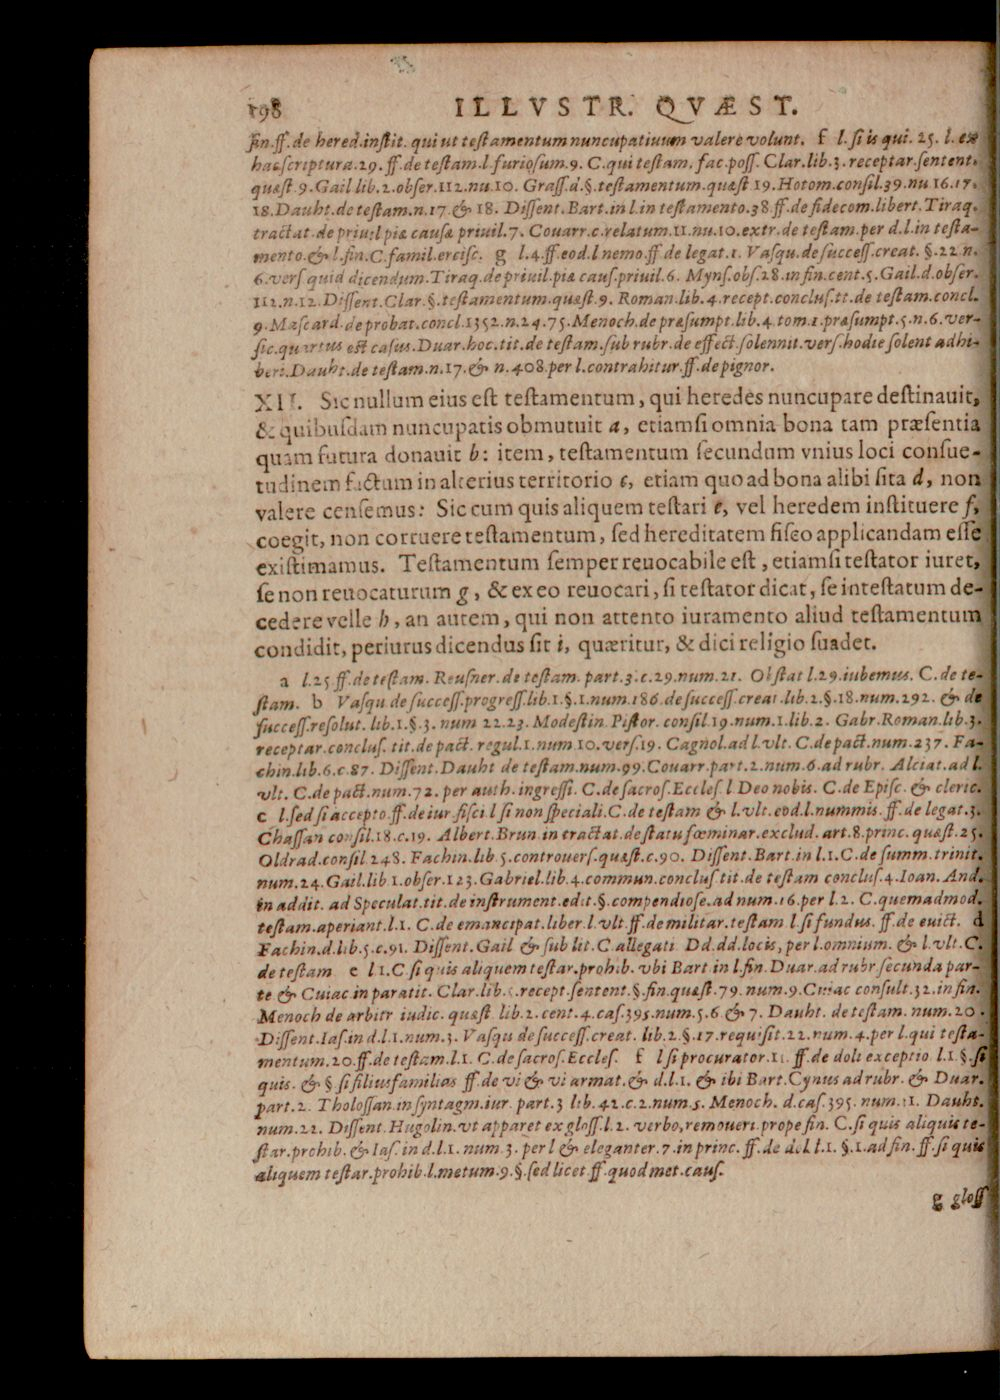 198 ILLVSTR. QVÆST.
fin.ff. de hered.instit. qui ut testamentum nuncupatiuum valere volunt. f l. si is qui. 25. l. ex
hac scriptura.29. ff.de testam.l furiosum.9. C.qui testam. fac.poss. Clar.lib.3. receptar.sentent.
quæst.9. Gail lib.2.obser.112.nu.10. Grass.d.§.testamentum.quæst 19. Hotom.consil.39.nu 16.17.
18. Dauht.de testam.n.17.& 18. Dissent. Bart.in l.in testamento.38 ff.de fidecom.libert. Tiraq.
tractat.de priuil piæ causæ priuil.7. Couarr.c.relatum.11.nu.10.extr.de testam.per d.l.in testa-
mento.& l.fin.C.famil.ercisc. g l.4.ff.eod.l nemo.ff.de legat.1. Vasqu.de success.creat. §.22 n.
6.vers quid dicendum.Tiraq.de priuil.piæ caus.priuil.6. Myns.obs.28.in fin.cent.5.Gail.d.obser.
112.n.12.Dissent.Clar.§.testamentum.quæst.9. Roman.lib.4.recept.conclus.tt.de testam.concl.
9.Mascard.de probat.concl.1352.n.24.75.Menoch.de præsumpt.lib.4 tom.1.præsumpt.5.n.6.ver-
sic.quartus est casus.Duar.hoc.tit.de testam.sub rubr.de effect.solennit.vers.hodie solent adhi-
beri.Dauht.de testam.n.17.& n.408.per l.contrahitur.ff.de pignor.
XII. Sic nullum eius est testamentum, qui heredes nuncupare destinauit,
& quibusdam nuncupatis obmutuit a, etiamsi omnia bona tam præsentia
quam futura donauit b: item, testamentum secundum vnius loci consue-
tudinem factum in alterius territorio c, etiam quo ad bona alibi sita d, non
valere censemus: Sic cum quis aliquem testari e, vel heredem instituere f,
coegit, non corruere testamentum, sed hereditatem fisco applicandam esse
existimamus. Testamentum semper reuocabile est, etiamsi testator iuret,
se non reuocaturum g, & ex eo reuocari, si testator dicat, se intestatum de-
cedere velle h, an autem, qui non attento iuramento aliud testamentum
condidit, periurus dicendus sit i, quæritur, & dici religio suadet.
a l.25 ff.de testam. Reusner.de testam. part.3.c.29.num.21. Obstat l.29.iubemus. C.de te-
stam. b Vasqu de success.progress.lib.1.§.1.num.186.de success.creat.lib.2.§.18.num.292. & de
success.resolut. lib.1.§.3. num 22.23. Modestin. Pistor. consil.19.num.1.lib.2. Gabr.Roman.lib.3.
receptar.conclus. tit.de pact. regul.1.num.10.vers.19. Cagnol.ad l.vlt. C.de pact.num.237. Fa-
chin.lib.6.c.87. Dissent.Dauht de testam.num.99.Couarr.part.2.num.6.ad rubr. Alciat.ad l.
vlt. C.de pact.num.72. per auth. ingressi. C.de sacros.Eccles.l Deo nobis. C.de Episc. & cleric.
c l.sed si accepto.ff.de iur fisci.l si non speciali.C.de testam & l.vlt.eod.l.nummis.ff.de legat.3.
Chassan consil.18.c.19. Albert.Brun.in tractat.de statu fœminar.exclud. art.8.princ.quæst.25.
Oldrad.consil 248. Fachin.lib 5.controuers.quæst.c.90. Dissent.Bart.in l.1.C.de summ.trinit.
num.24.Gail.lib 1.obser.123.Gabriel.lib.4.commun.conclus tit.de testam conclus.4.Ioan. And.
in addit. ad Speculat.tit.de instrument.edit.§.compendiose.ad num.16.per l.2. C.quemadmod.
testam.aperiant.l.1. C.de emancipat.liber l.vlt.ff.de militar.testam l.si fundus. ff.de euict. d
Fachin.d.lib.5.c.91. Dissent.Gail & sub lit.C allegati Dd.dd.locis, per l.omnium. & l.vlt.C.
de testam e l 1.C si quis aliquem testar.prohib.vbi Bart in l.fin.Duar.ad rubr secunda par-
te & Cuiac in paratit. Clar.lib.5.recept.sentent.§.fin.quæst.79. num.9.Cuiac consult.32.in fin.
Menoch de arbitr iudic. quæst. lib.2. cent.4.cas.395.num.5.6 & 7. Dauht. de testam. num.20.
Dissent.Ias.in d.l.1.num.3. Vasqu de success.creat. lib.2.§.17.requisit.22.num.4.per l.qui testa-
mentum.20.ff.de testam.l.1. C.de sacros.Eccles. f l si procurator.11. ff.de doli exceptio l.1 §.si
quis. & § si filiusfamilias ff.de vi & vi armat.& d.l.1. & ibi Bart.Cynus ad rubr. & Duar.
part.2. Tholossan.in syntagm.iur. part.3 lib. 42.c.2.num.5. Menoch. d.cas.395. num.11. Dauht.
num.22. Dissent.Hugolin.vt apparet ex gloss.l.2. verbo,remoueri.prope fin. C.si quis aliquis te-
star.prohib. & Ias.in d.l.1. num.3. per l & eleganter.7.in princ.ff.de dol l.1. §.1.ad fin. ff.si quis
aliquem testar.prohib.l.metum.9.§.sed licet ff.quod met.caus.
g gloss